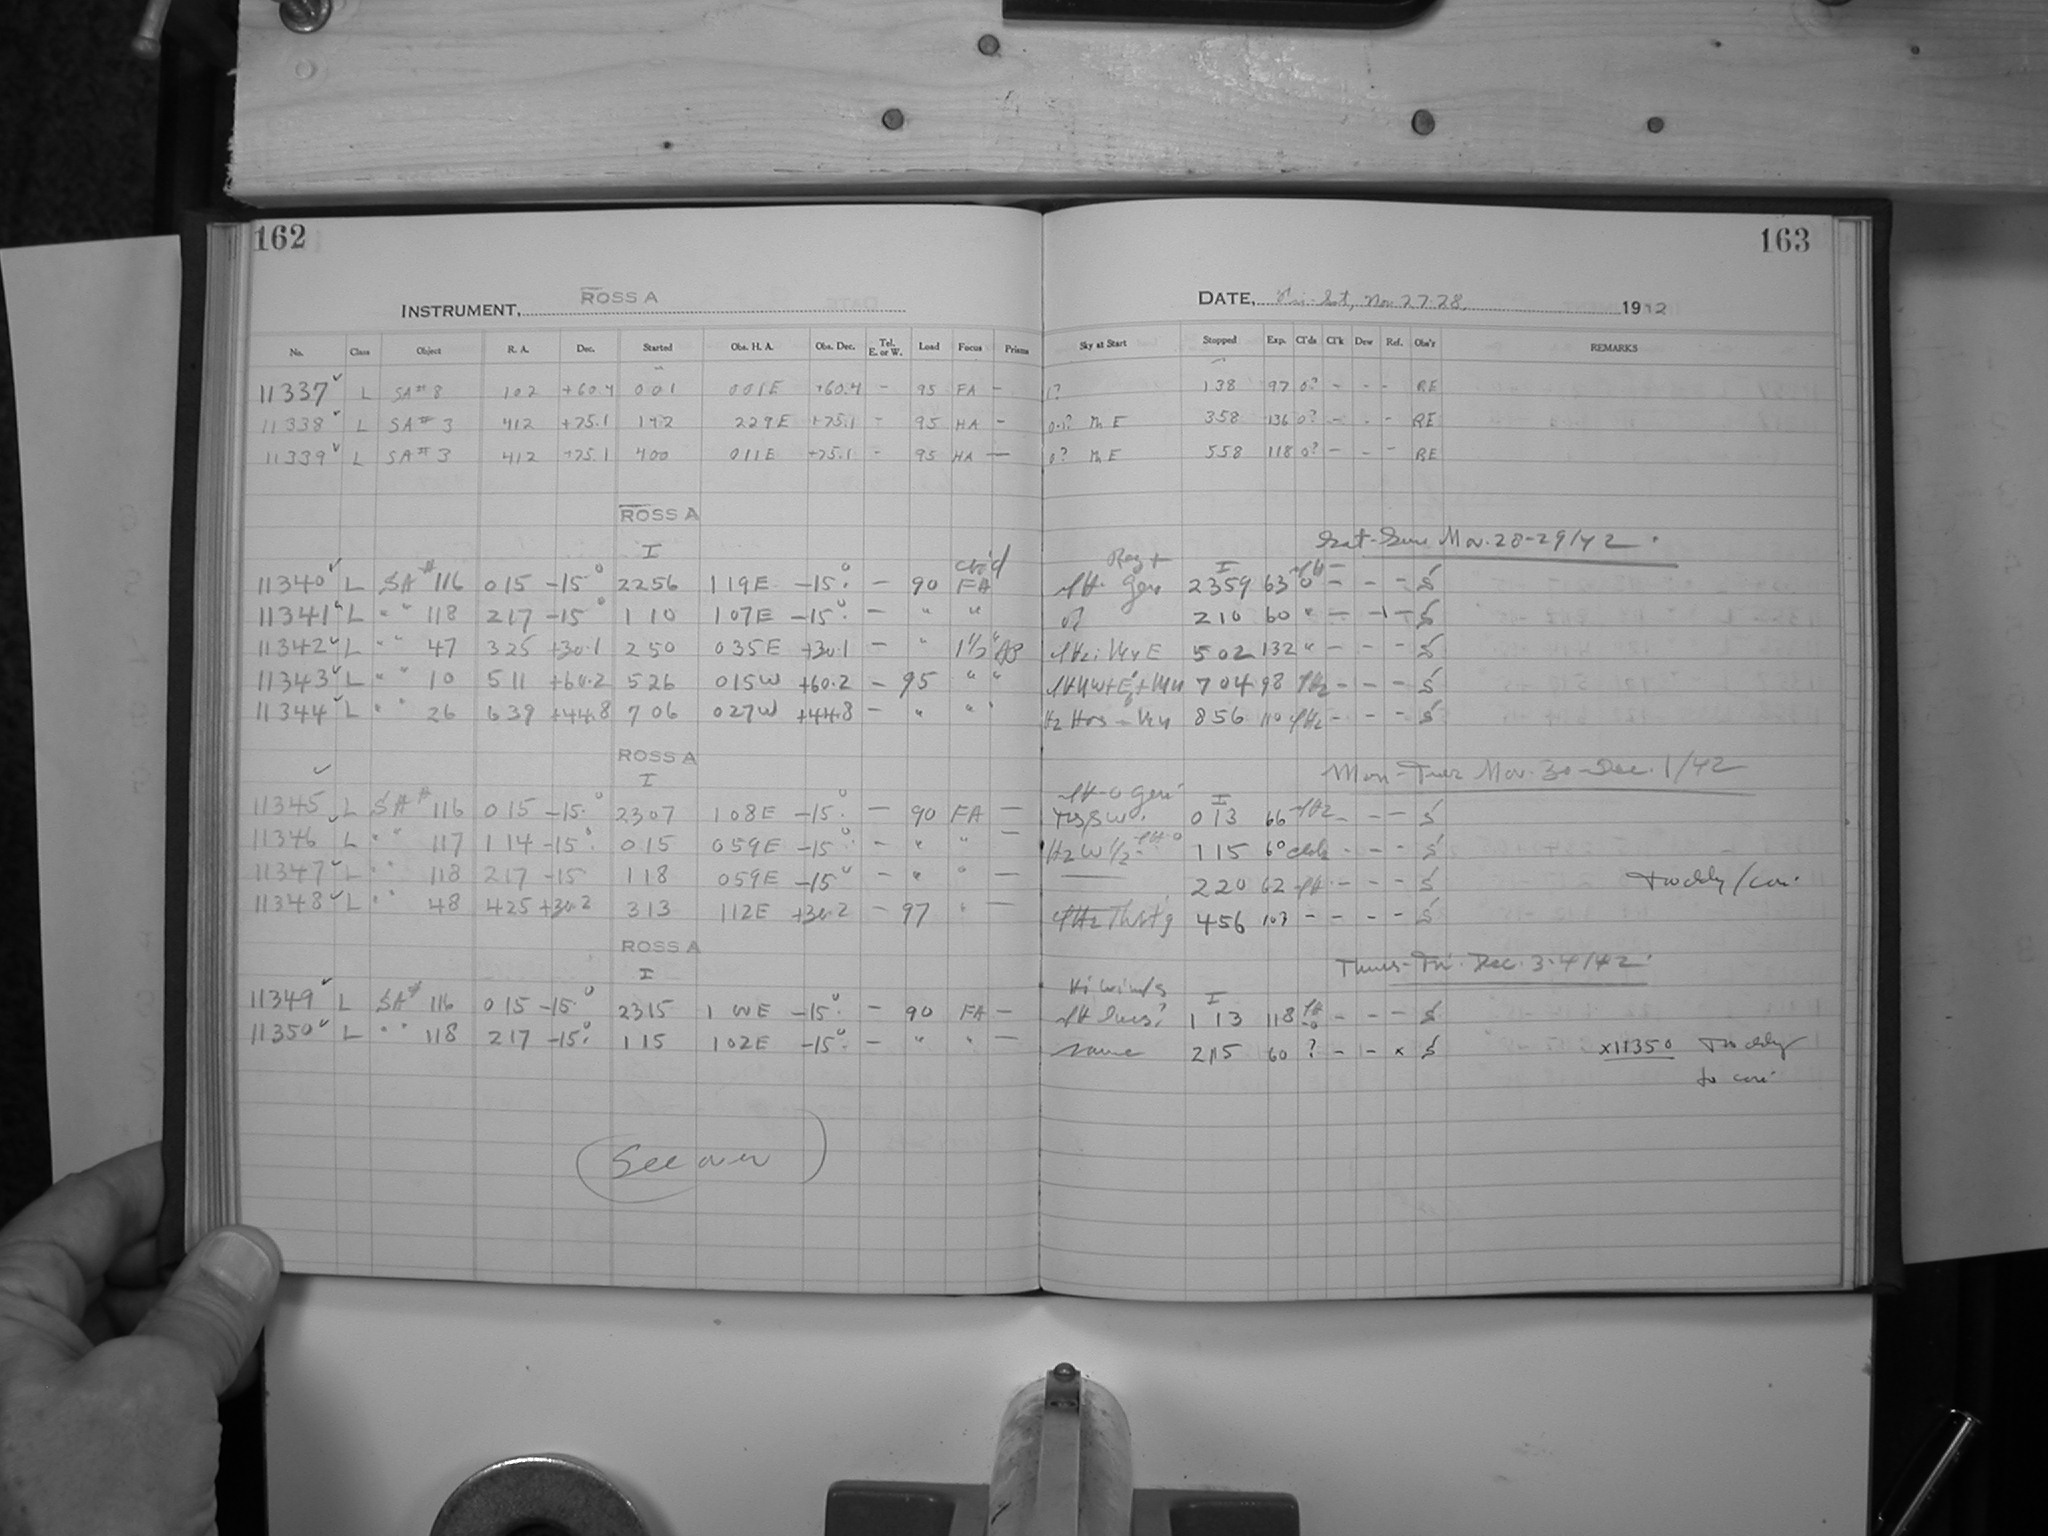 162
163
INSTRUMENT, ROSS A
DATE, Nov. 27-28, 1942
No. Class Object R. A. Dec. Started Obs. H. A. Obs. Dec. Tel. E. or W. Load Focus Prisms Sky at Start Stopped Exp. Cl'ds Cl'k Dew Ref. Obs'r REMARKS
11337 L SA# 8 102 +60.4 001 001E +60.4 - 95 FA - 1? 138 97 0? - - - RE
11338 L SA# 3 412 +75.1 142 229E +75.1 - 95 HA - E 358 136 0? - - - RE
11339 L SA# 3 412 +75.1 400 011E +75.1 - 95 HA - 0? E 558 118 0? - - - RE
ROSS A
I
Sat-Sun Nov. 28-29/42
11340 L SA# 116 015 -15° 2256 119E -15° - 90 FA 2359 63 - - - S
11341 L " " 118 217 -15° 110 107E -15° - " " 210 60 " - - - S
11342 L " " 47 325 +30.1 250 035E +30.1 - " 502 132 " - - - S
11343 L " " 10 511 +60.2 526 015W +60.2 - 95 " " 704 98 - - - S
11344 L " " 26 639 +44.8 706 027W +44.8 - " " " 856 110 - - - S
ROSS A
I
Mon-Tues Nov. 30-Dec. 1/42
11345 L SA# 116 015 -15° 2307 108E -15° - 90 FA - 013 66 - - - S
11346 L " " 117 114 -15° 015 059E -15° - " " - 115 60 - - - S
11347 L " " 118 217 -15 118 059E -15° - " " - 220 62 - - - S
11348 L " " 48 425 +30.2 313 112E +30.2 - 97 " - 456 103 - - - - S
ROSS A
I
Thurs-Fri. Dec. 3-4/42
Hi winds
11349 L SA# 116 015 -15° 2315 1 00E -15° - 90 FA - 113 118 - - - S
11350 L " " 118 217 -15° 115 102E -15° - " " - same 215 60 ? - - x S x11350
(See over)